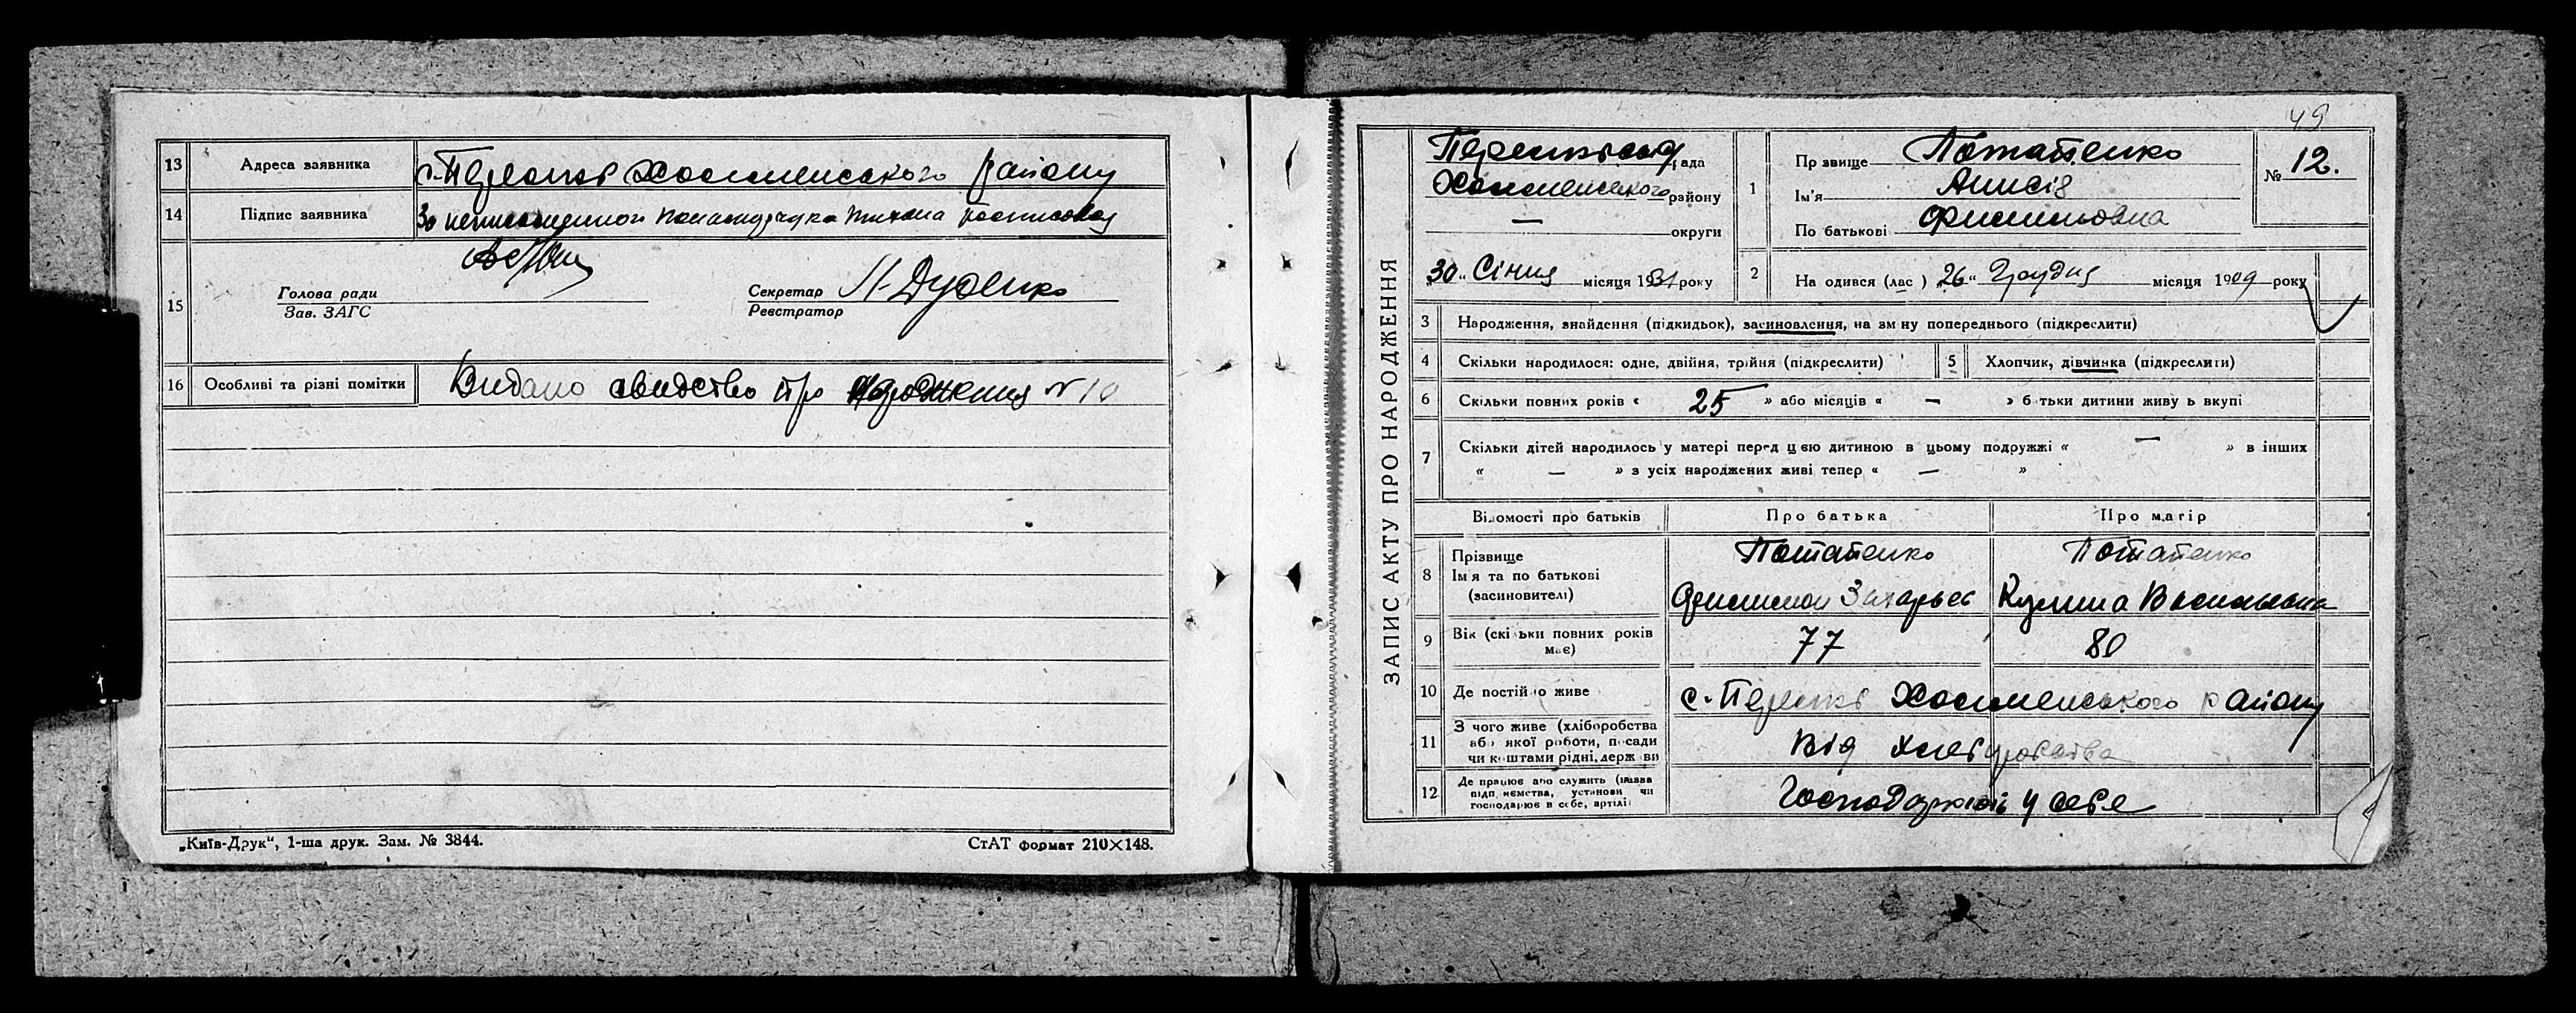 13 Адреса заявника с. Перелюб Холменського району
14 Підпис заявника За неписьменного розписався
15 Голова ради
Зав. ЗАГС
Секретар
Реєстратор
16 Особливі та різні помітки Видано свидоство про народження № 10
„Київ-Друк“, 1-ша друк. Зам. № 3844. СтАТ формат 210×148.
49
ЗАПИС АКТУ ПРО НАРОДЖЕННЯ
рада
Холменського району
— округи
„30“ Січня місяця 1931 року
1 Пр звище Потапенко
Ім'я Анисія
По батькові
№ 12.
2 На одився (лас ) „26“ Грудня місяця 1909 року
3 Народження, знайдення (підкидьок), засиновлення, на зм ну попереднього (підкреслити)
4 Скільки народилося: одне, двійня, трійня (підкреслити) 5 Хлопчик, дівчинка (підкреслити)
6 Скільки повних років « 25 » або місяців « — » б тьки дитини живу ь вкупі
7 Скільки дітей народилось у матері перед цією дитиною в цьому подружжі « — » в інших
« — » з усіх народжених живі тепер « — »
Відомості про батьків Про батька Про матір
8 Прізвище Потапенко Потапенко
Ім я та по батькові
(засиновителі) Захарьев Кулина Васильевна
9 Вік (скі ьки повних років
має) 77 80
10 Де постій о живе с. Перелюб Холменського району
11 З чого живе (хліборобства
або якої роботи, посади
чи коштами рідні, держ ви Від хлеборобства
12 Де працює або служить (назва
підп иємства, установи чи
господарює в себе, артілі) Господарюють у себе